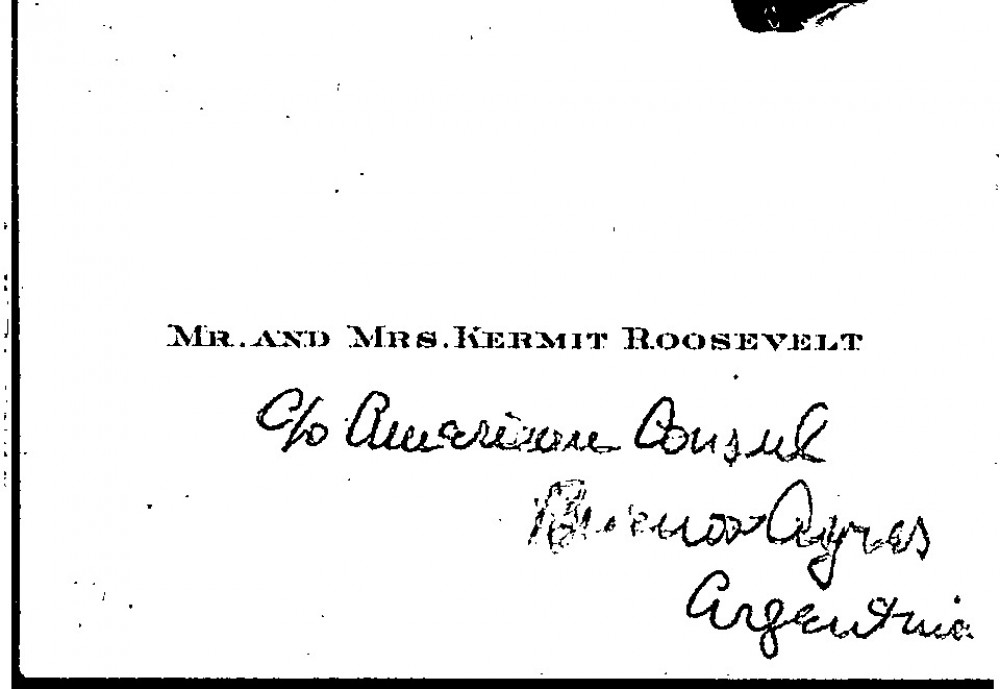 MR. AND MRS. KERMIT ROOSEVELT
c/o American Consul
Buenos Ayres
Argentina